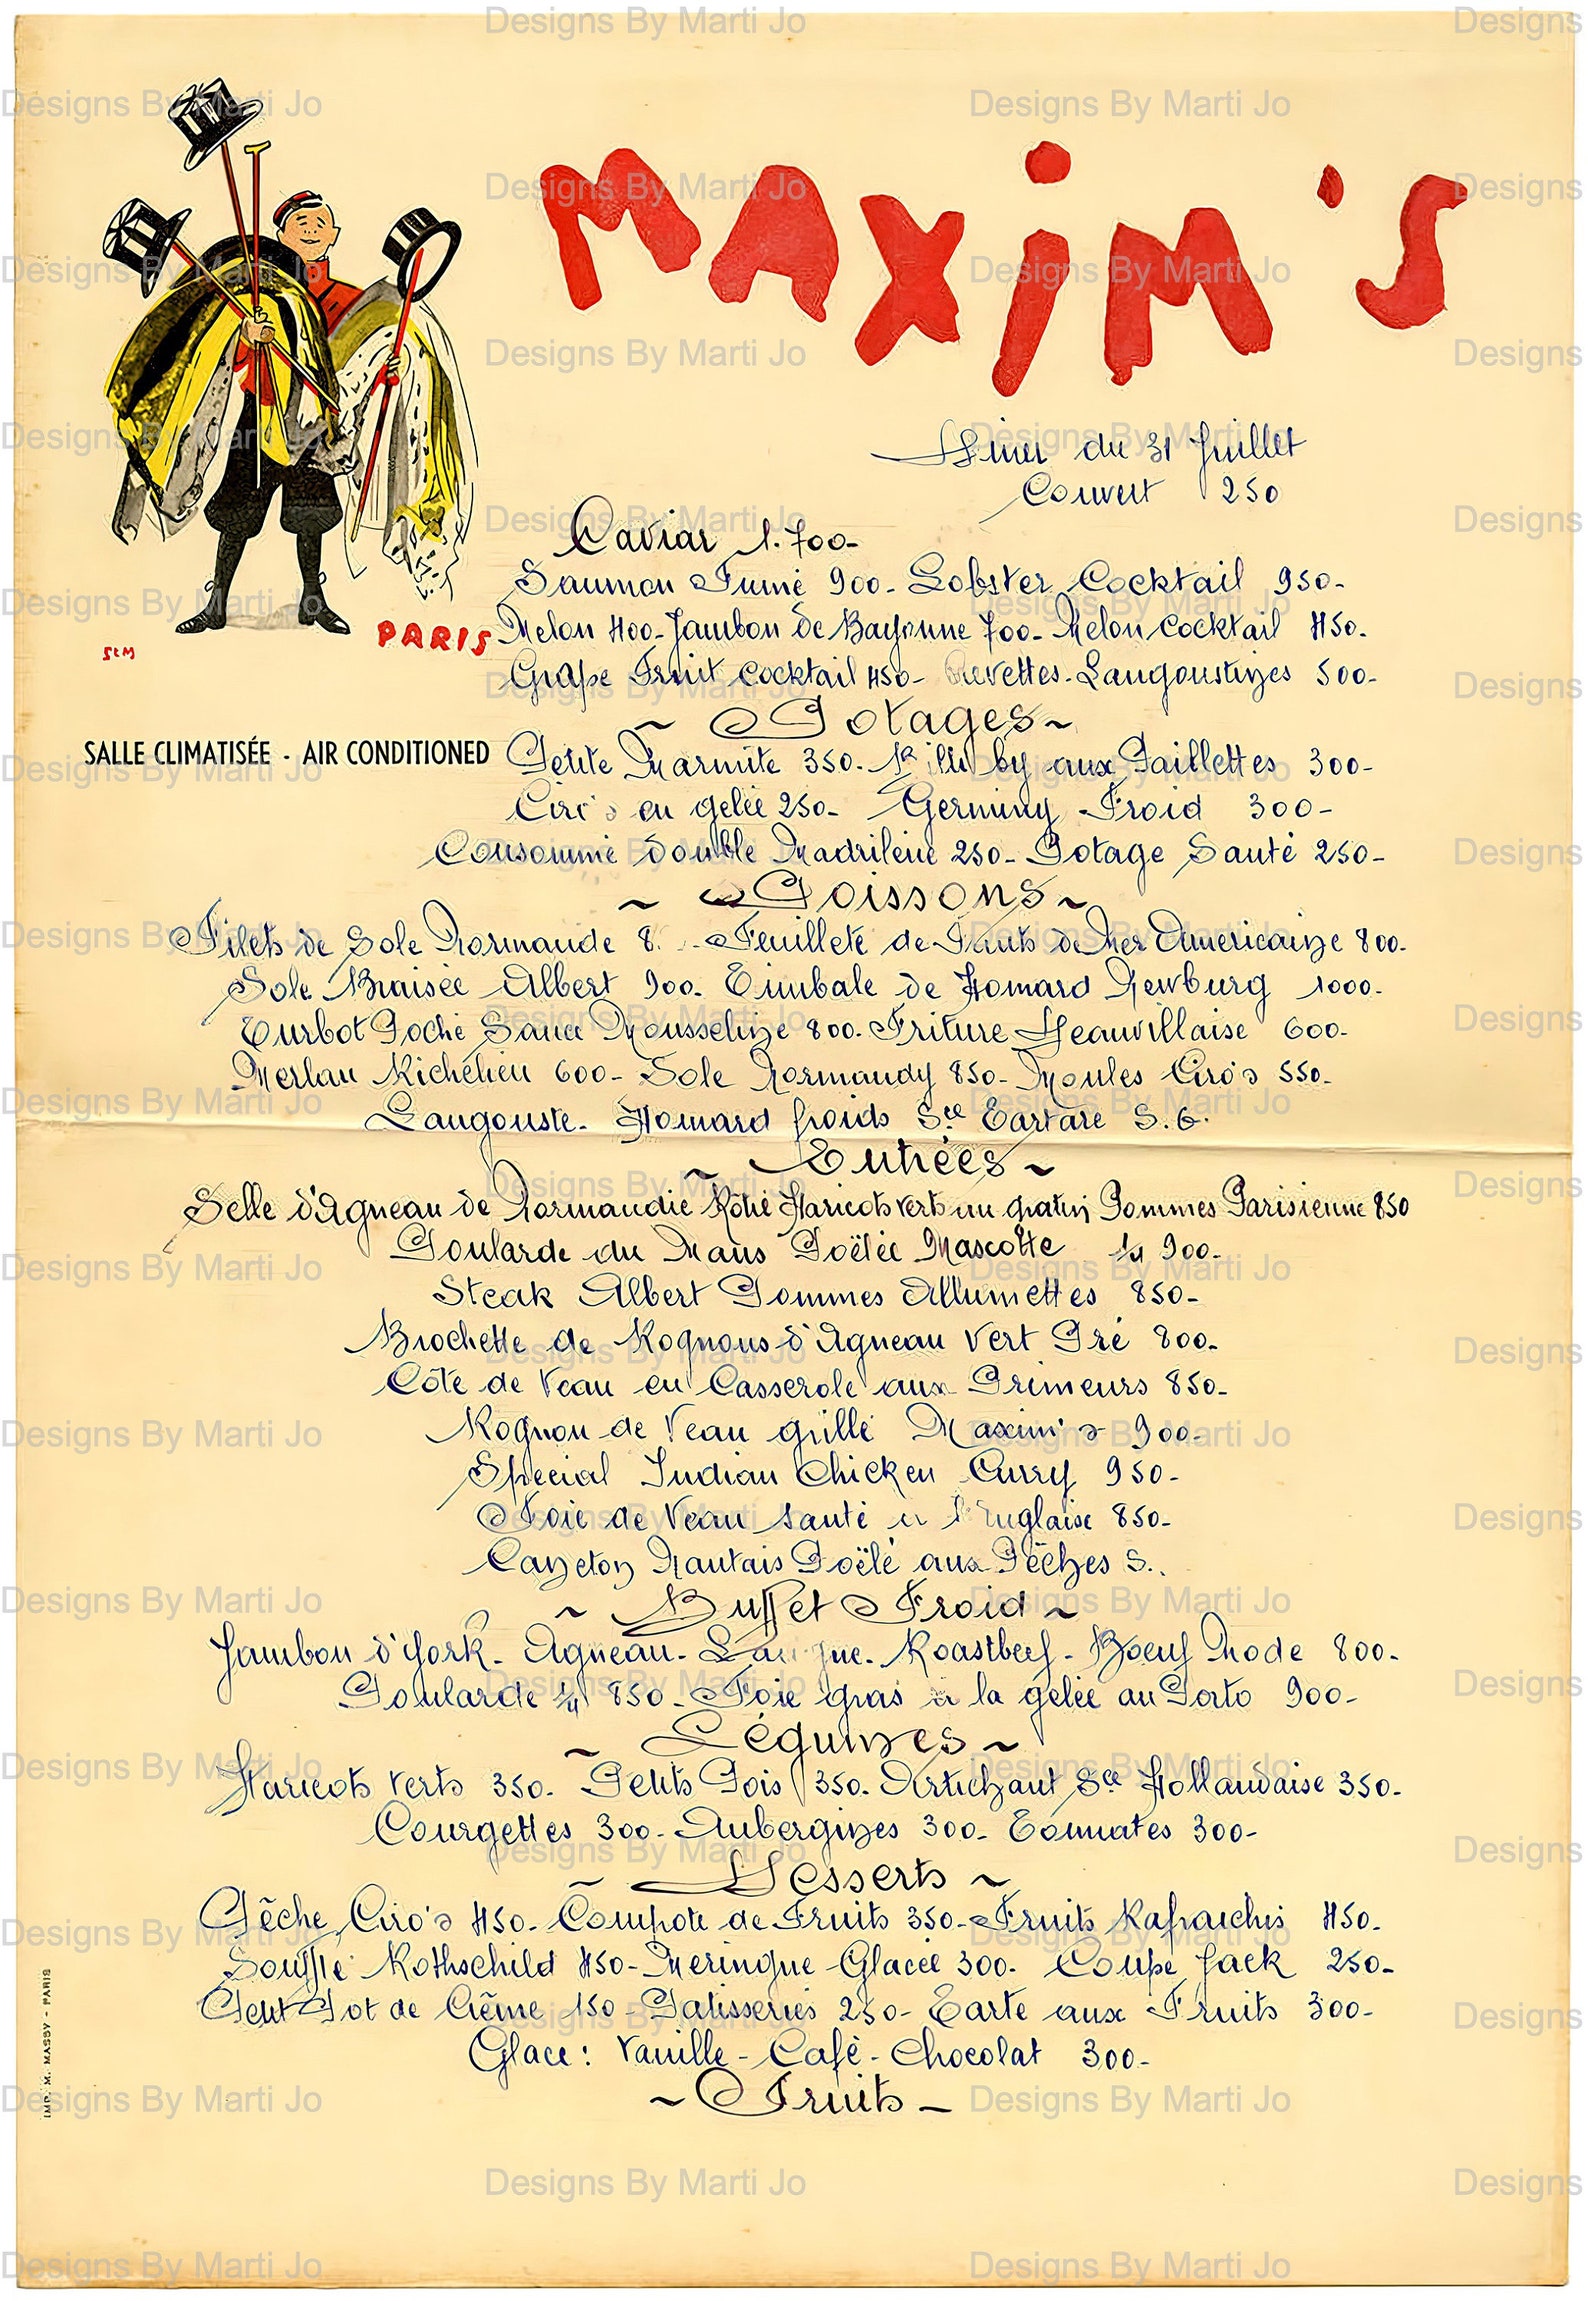 MAXiM'S
Dîner du 31 Juillet
Couvert 250
Caviar 1.700-
Saumon Fumé 900- Lobster Cocktail 950-
PARIS
SEM
Melon 400- Jambon de Bayonne 700- Melon Cocktail 450-
Grape Fruit Cocktail 450- Crevettes-Langoustines 500-
~ Potages ~
SALLE CLIMATISÉE - AIR CONDITIONED
Petite Marmite 350- by aux Paillettes 300-
Ciro's en gelée 250- Germiny Froid 300-
Consommé Double Madrilène 250- Potage Santé 250-
~ Poissons ~
Filets de Sole Normande 8 - Feuilleté de Fruits de Mer Américaine 800-
Sole Braisée Albert 900- Timbale de Homard Newburg 1000-
Turbot Poché Sauce Mousseline 800- Friture Deauvillaise 600-
Merlan Richelieu 600- Sole Normandy 850- Moules Ciro's 550-
Langouste- Homard froids Sce Tartare S.G.
~ Entrées ~
Selle d'Agneau de Normandie Rôtie Haricots verts au gratin Pommes Parisienne 850
Poularde du Mans Poëlée Mascotte 1/4 900-
Steak Albert Pommes Allumettes 850-
Brochette de Rognons d'Agneau Vert Pré 800-
Côte de Veau en Casserole aux Primeurs 850-
Rognon de Veau grillé Maxim's 900-
Special Indian Chicken Curry 950-
Foie de Veau sauté à l'Anglaise 850-
Caneton Nantais Poëlé aux Pêches S.
~ Buffet Froid ~
Jambon d'York- Agneau- Langue- Roastbeef- Boeuf Mode 800-
Poularde 1/4 850- Foie gras à la gelée au Porto 900-
~ Légumes ~
Haricots Verts 350- Petits Pois 350- Artichaut Sce Hollandaise 350-
Courgettes 300- Aubergines 300- Tomates 300-
~ Desserts ~
Pêche Ciro's 450- Compote de Fruits 350- Fruits Rafraichis 450-
Soufflé Rothschild 450- Meringue Glacée 300- Coupe Jack 250-
Petit Pot de Crème 150- Patisseries 250- Tarte aux Fruits 300-
Glace: Vanille- Café- Chocolat 300-
~ Fruits ~
IMP. M. MASSY - PARIS
Designs By Marti Jo